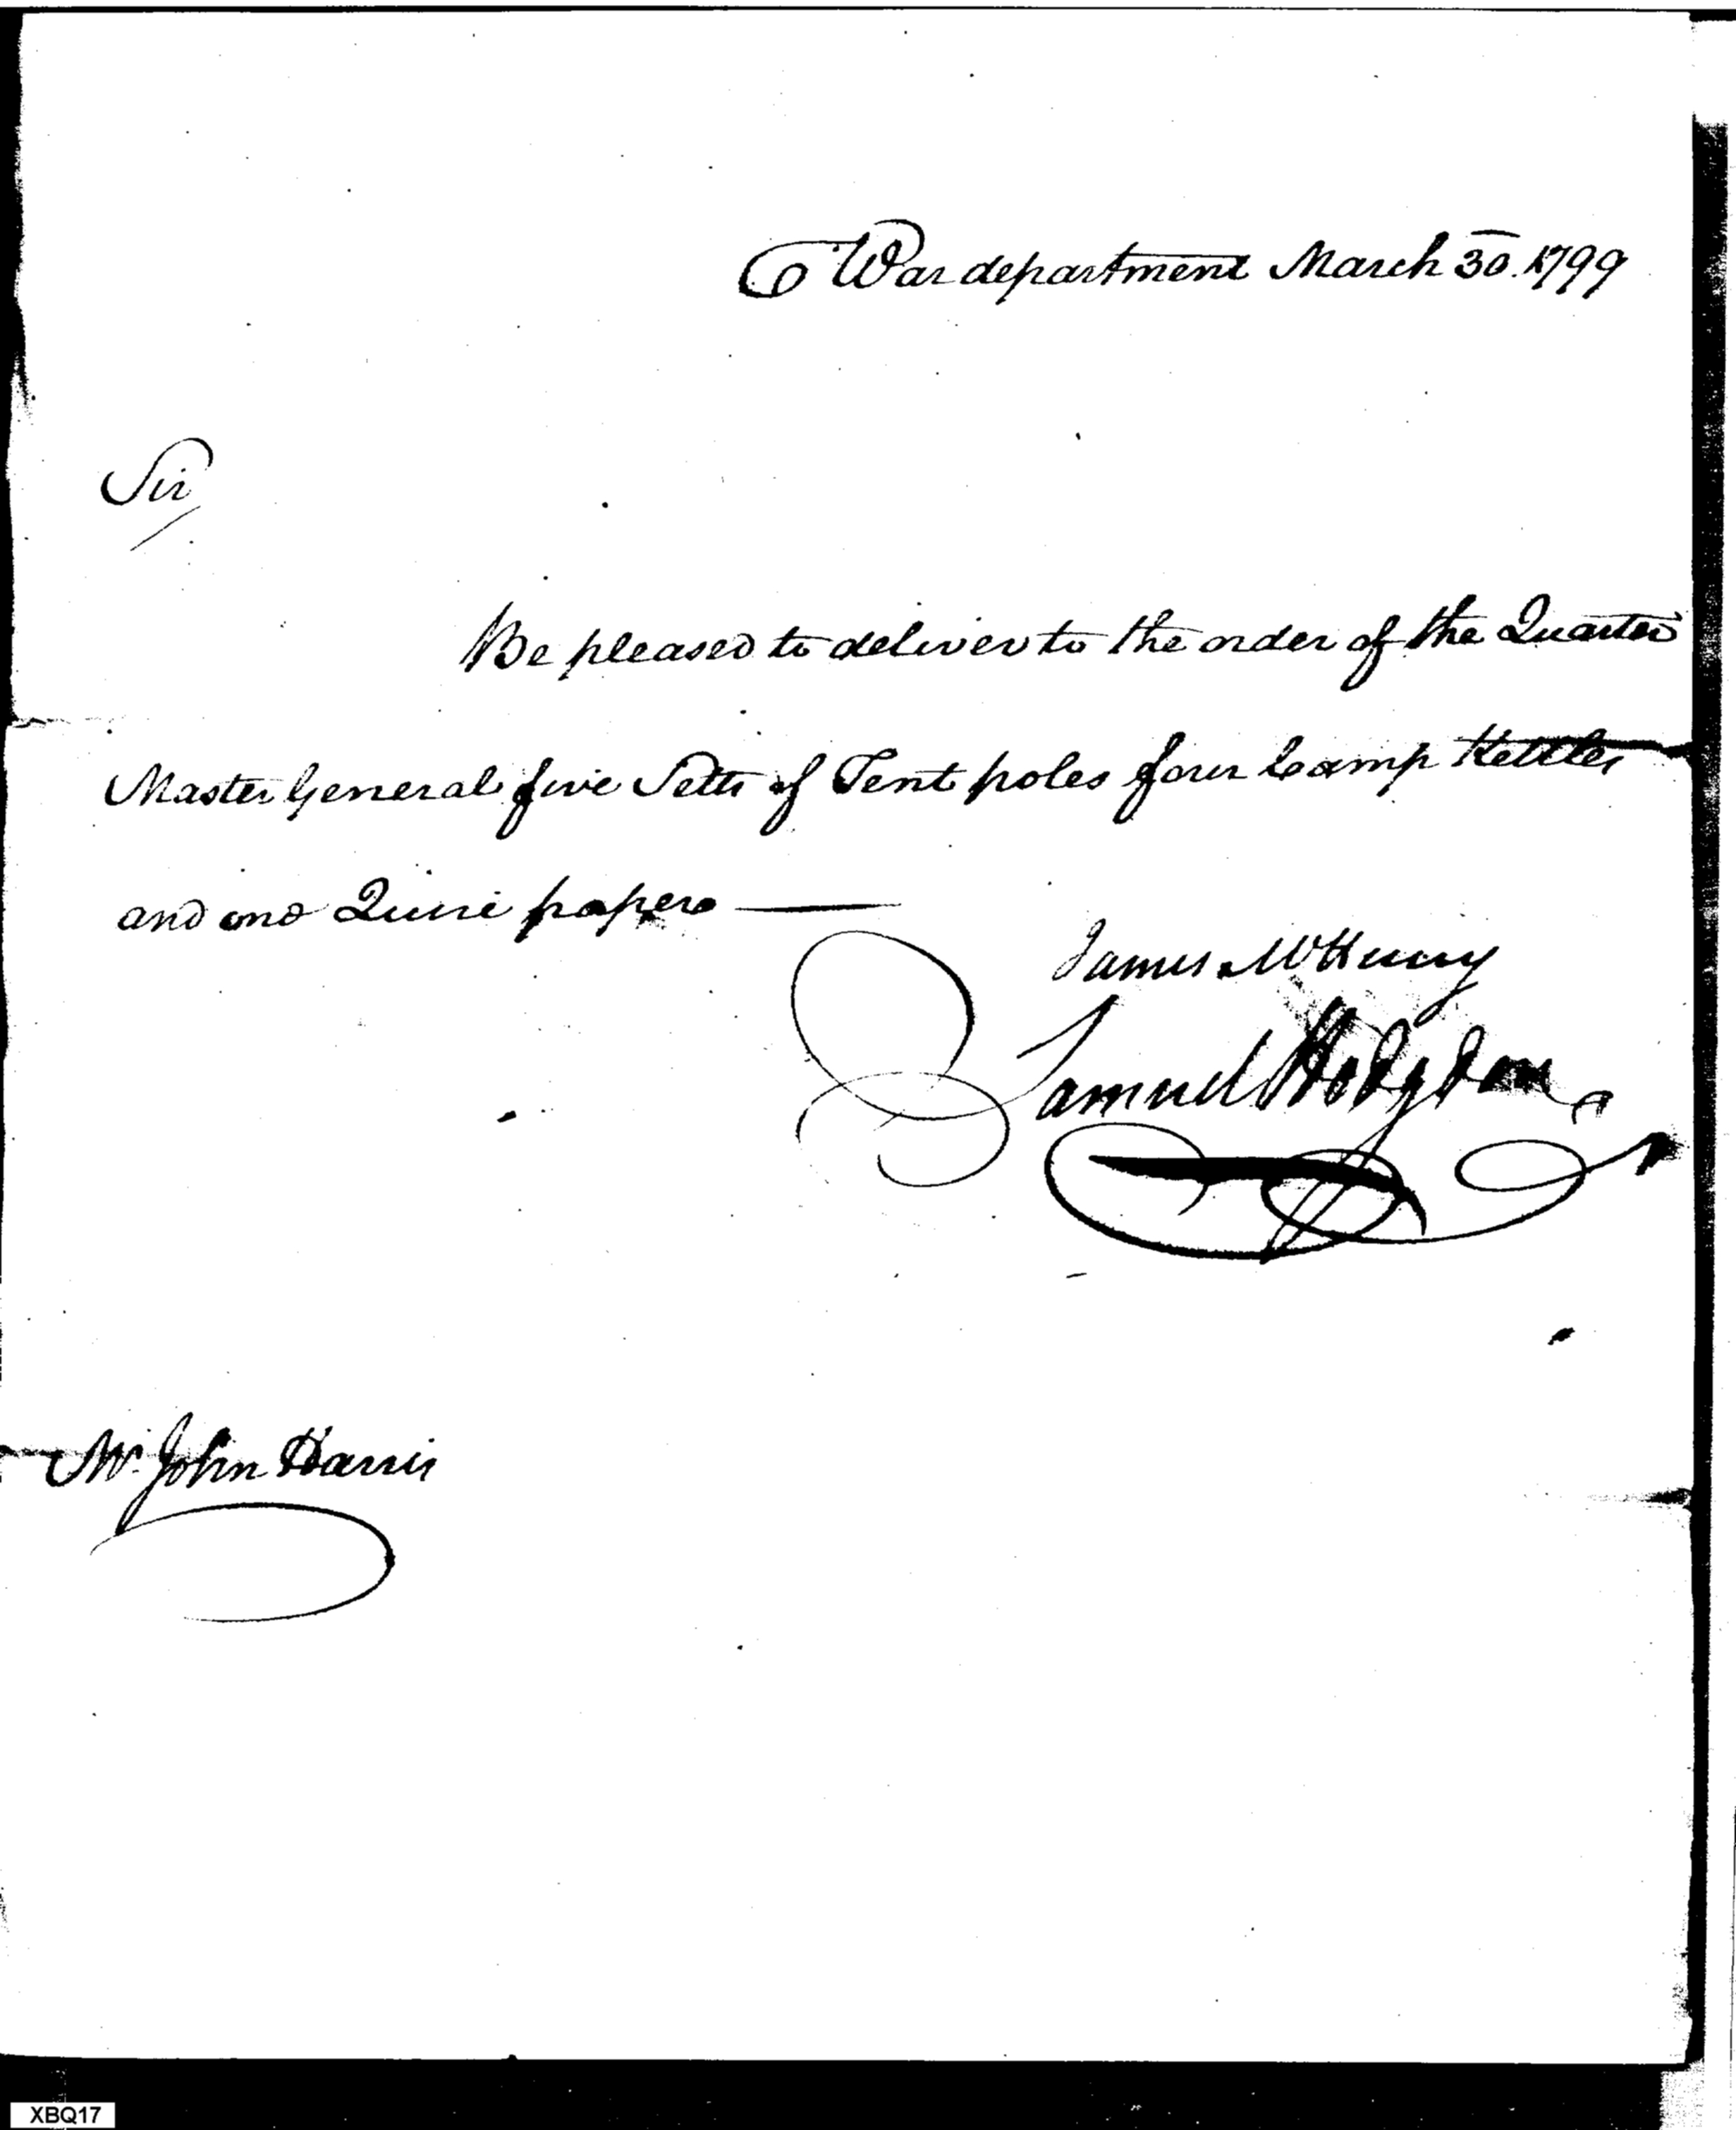 War department March 30. 1799
Sir
Be pleased to deliver to the order of the Quarter
Master General five Setts of Tent poles four Camp Kettles
and one Quire paper
James McHenry
Samuel Hodgdon
Mr. John Harris
XBQ17